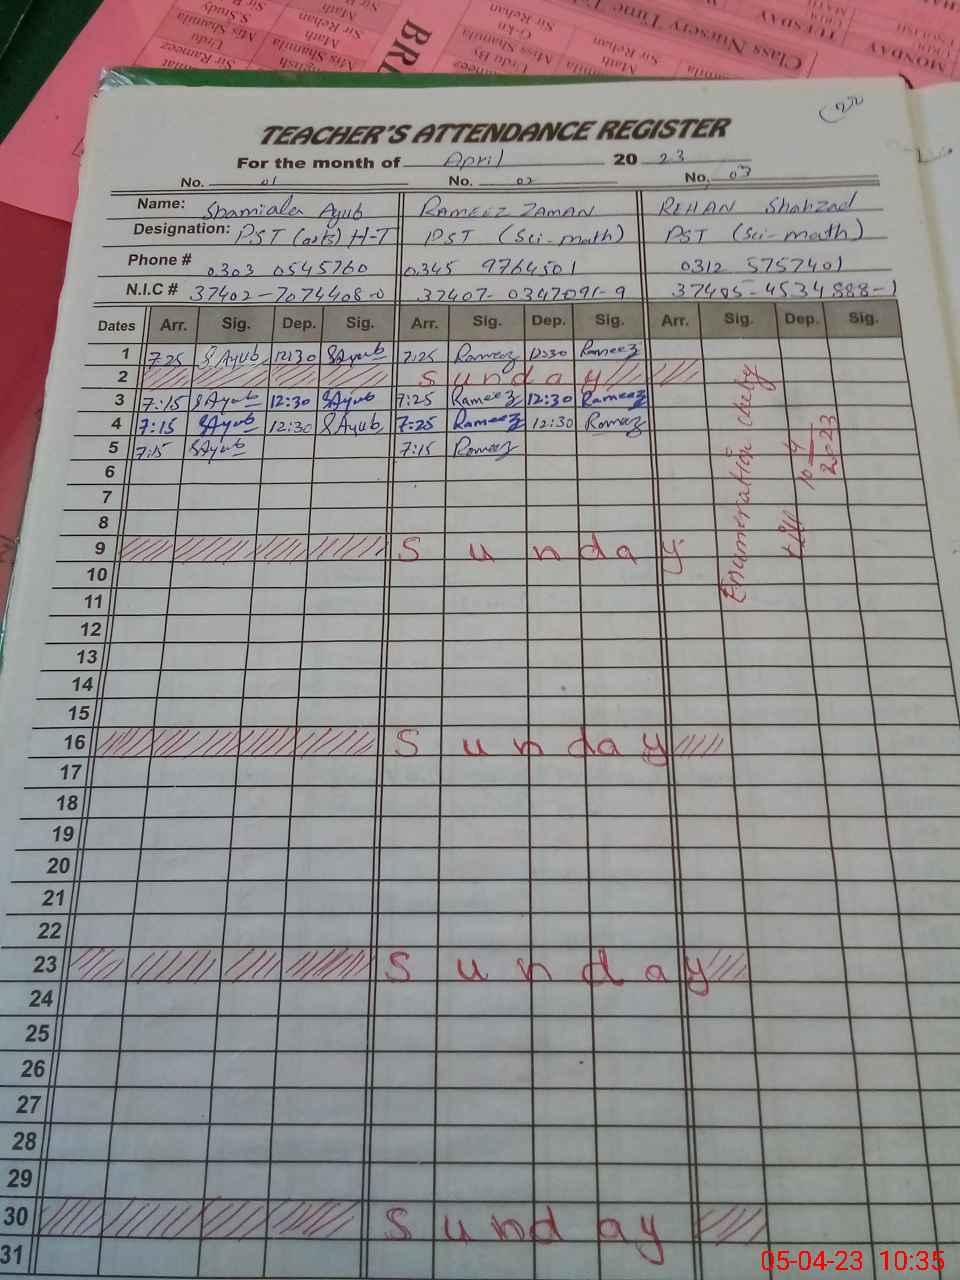 MONDAY
TUESDAY
Class Nursery Time
Sir Rehan
Math
Miss Shamila
Urdu By
Sir Rehan
Math
Mrs Shamila
Urdu
Sir Rameez
TEACHER'S ATTENDANCE REGISTER
For the month of April 20 23
No. 01 No. 02 No. 03
Name: Shamiala Ayub RAMEEZ ZAMAN REHAN Shahzad
Designation: PST (arts) H-T PST (Sci-math) PST (Sci-math)
Phone # 0303 0545760 0345 9764501 0312 5757401
N.I.C # 37402-7074408-0 37407-0347091-9 37405-4534888-1
Dates Arr. Sig. Dep. Sig. Arr. Sig. Dep. Sig. Arr. Sig. Dep. Sig.
1 7:25 SAyub 12:30 SAyub 7:25 Rameez 12:30 Rameez
2 Sunday
3 7:15 SAyub 12:30 SAyub 7:25 Rameez 12:30 Rameez
4 7:15 SAyub 12:30 SAyub 7:25 Rameez 12:30 Rameez
5 7:15 SAyub 7:15 Rameez
Enumeration duty
till 10-4-2023
6
7
8
9 Sunday
10
11
12
13
14
15
16 Sunday
17
18
19
20
21
22
23 Sunday
24
25
26
27
28
29
30 Sunday
31
05-04-23 10:35